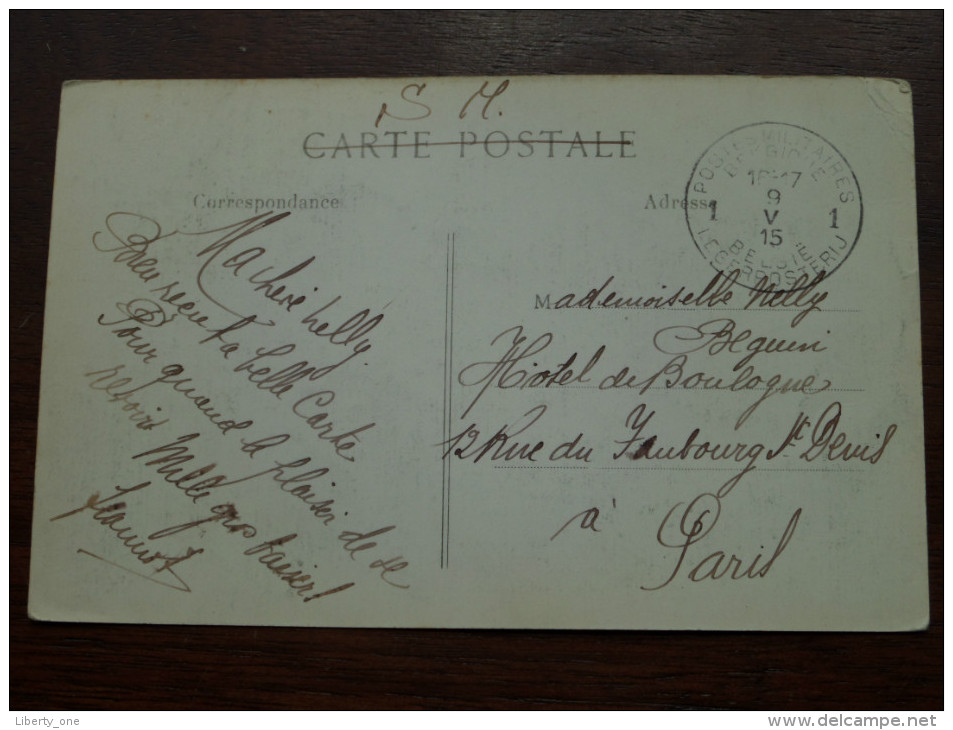 S M.
CARTE POSTALE
Correspondance
Adresse
POSTES MILITAIRES
BELGIQUE
9
V
15
1 1
BELGIE
LEGERPOSTERIJ
Ma chère nelly
Bien reçu ta belle Carte
Pour quand le plaisir de se
revoir Mille gros baisers
Jeannot
Mademoiselle Nelly
Beguin
Hôtel de Boulogne
12 Rue du Faubourg St Denis
à Paris
Liberty_one
http://www.delcampe.net